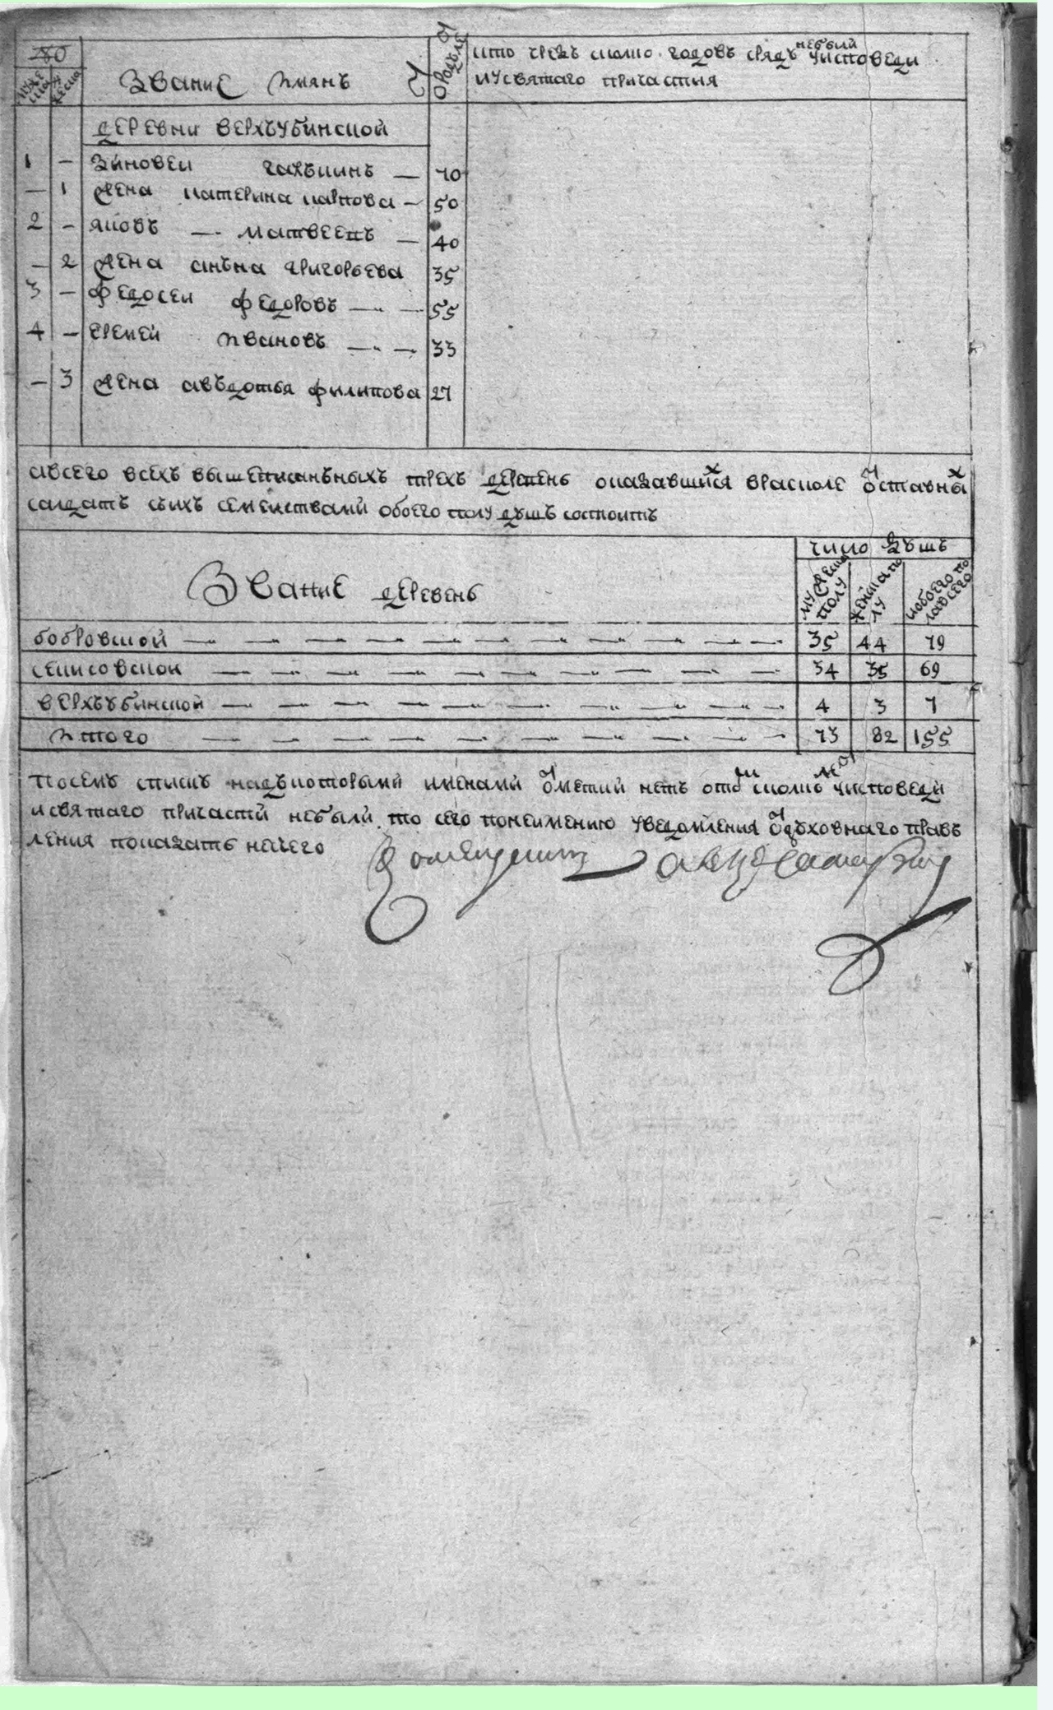 званиЕ имянъ
кто чрезъ сколко годовъ срядъ небыли уисповеди
иусвятаго причастия
деревни верхъубинской
1 — зиновеи гакъшинъ — 70
— 1 жена катерина карпова — 50
2 — яковъ — матвеевъ — 40
— 2 жена анъна григорьева 35
3 — федосеи федоровъ — 55
4 — еремей ивановъ — 33
— 3 жена авъдотья филипова 27
авсего всехъ вышеписанъныхъ трехъ деревень оказавшихся врасколе отставных
салдатъ сыхъ семеиствами обоего полу душъ состоитъ
число душъ
Звание деревень
мужеска полу
женска полу
иобоего полавсего
бобровской — 35 44 79
секисовской — 34 35 69
верхъубинской — 4 3 7
итого — 73 82 155
посемъ списк надъкоторыми именами отметки нетъ отом сколко уисповеди
исвятаго причастй небыли то сего понеимению уведомления отдъховнаго прав
ления показать нечего